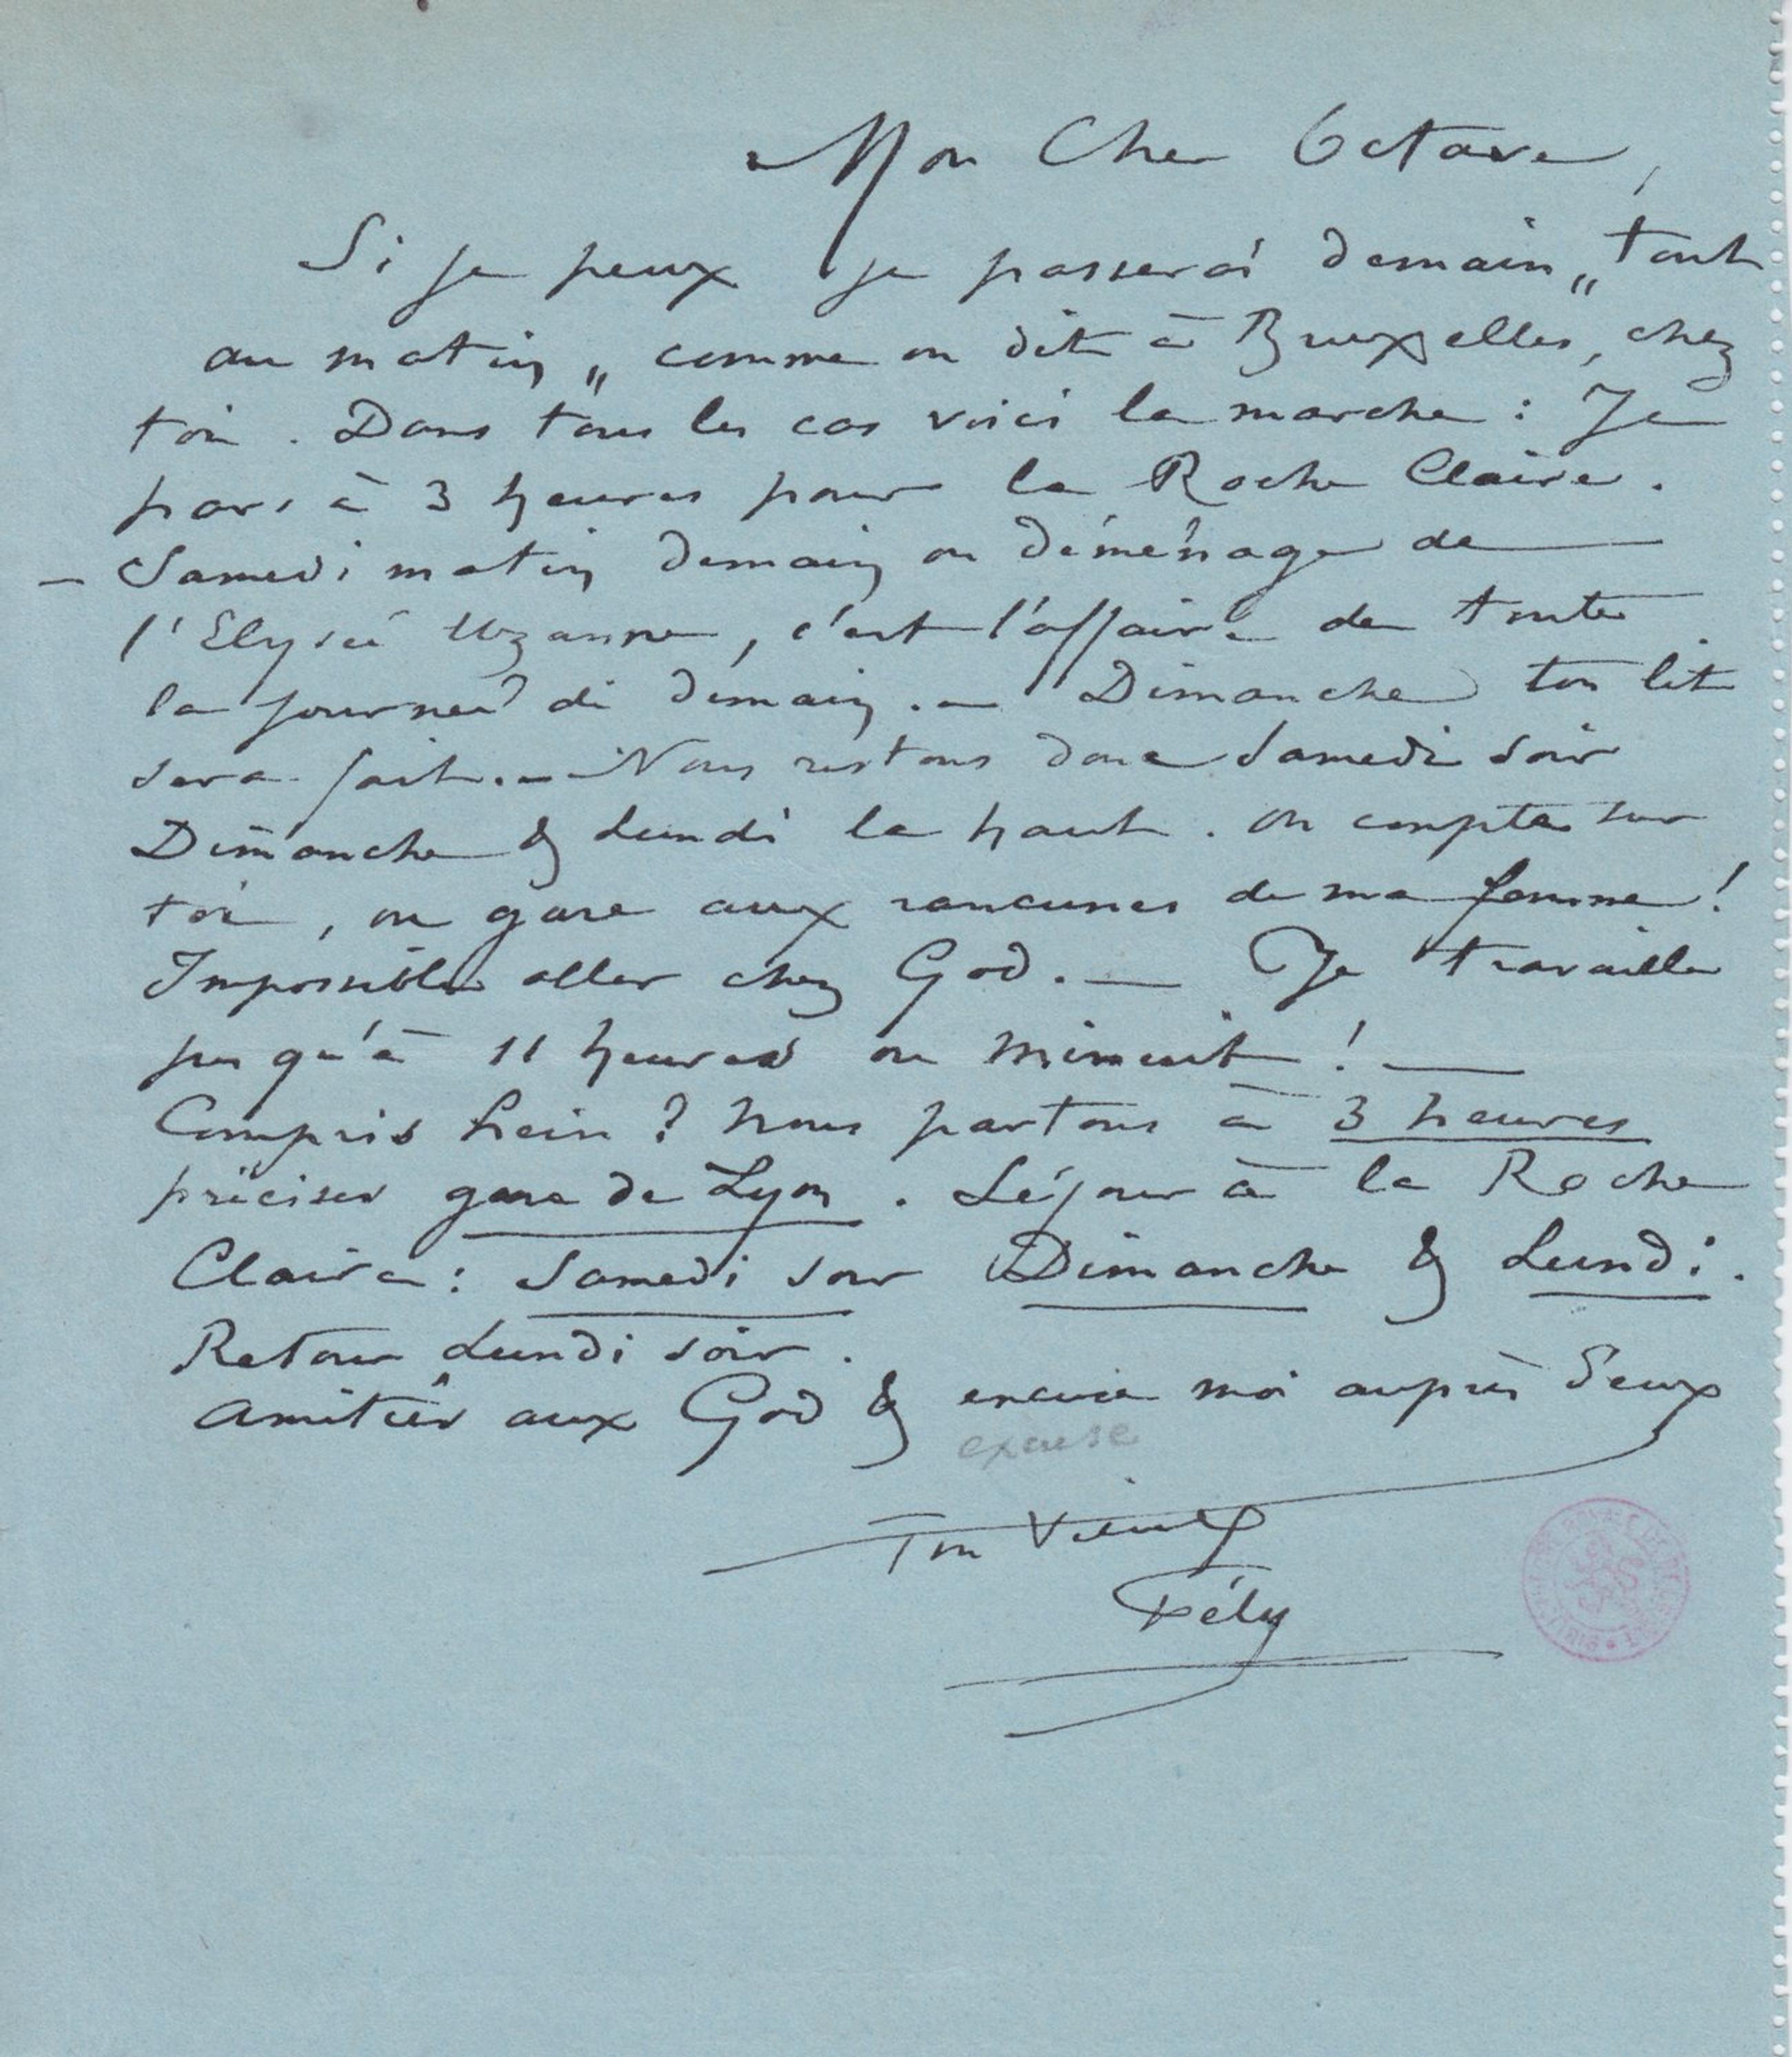 Mon Cher Octave,
Si je peux je passerai demain „tout
au matin„ comme on dit à Bruxelles, chez
toi. Dans tous les cas voici la marche : Je
pars à 3 heures pour la Roche Claire.
– Samedi matin demain on déménage de
l'Elysée Uzanne, c'est l'affaire de toute
la journée de demain. – Dimanche ton lit
sera fait. – Nous restons donc Samedi soir
Dimanche & Lundi la haut. On compte sur
toi, ou gare aux rancunes de ma femme !
Impossible aller chez God. — Je travaille
jusqu'à 11 heures ou minuit ! —
Compris hein ? Nous partons à 3 heures
précises gare de Lyon. Séjour à la Roche
Claire : Samedi soir Dimanche & Lundi.
Retour Lundi soir.
Amitiés aux God & excuse moi auprès d'eux
excuse
Ton Vieux
Fély